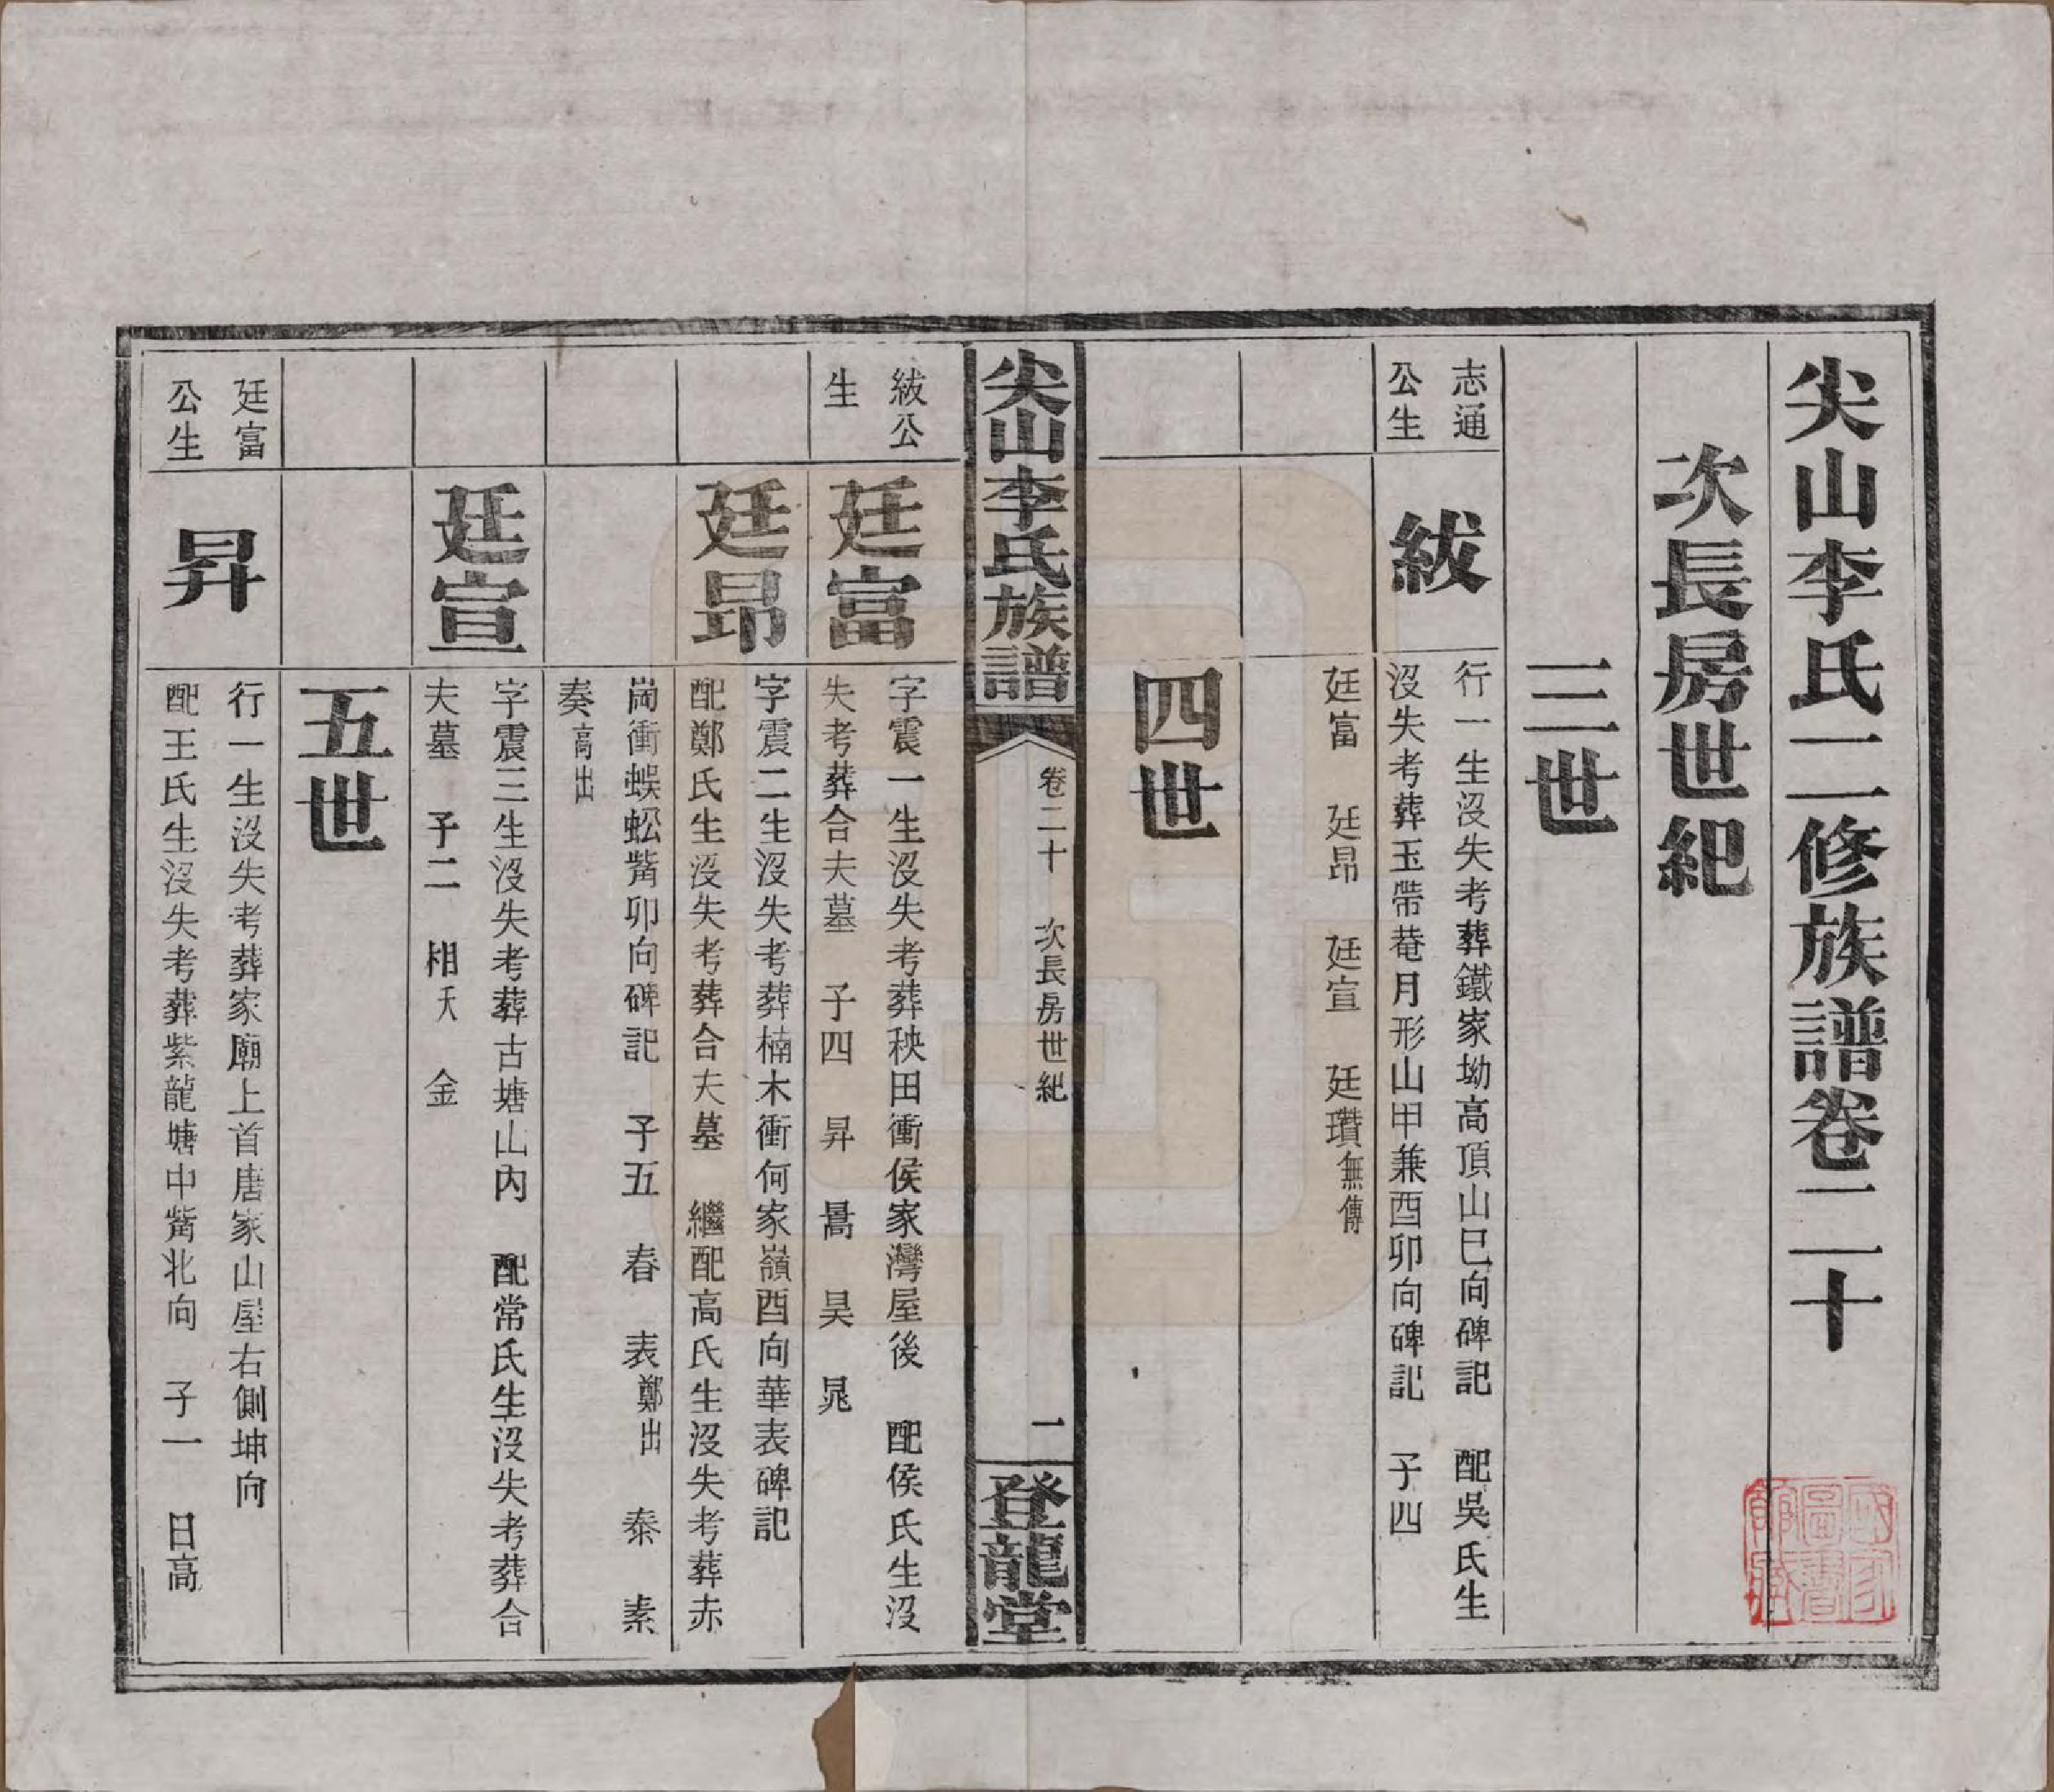 尖山李氏二修族譜卷二十
次長房世紀
三世
志通
公生
紱
行一生沒失考葬鐵家坳高頂山巳向碑記　配吳氏生
沒失考葬玉帶菴月形山甲兼酉卯向碑記　子四
廷富　廷昂　廷宣　廷瓚無傳
四世
尖山李氏族譜
卷二十　次長房世紀
一
登龍堂
紱公
生
廷富
字震一生沒失考葬秧田衝侯家灣屋後　配侯氏生沒
失考葬合夫墓　子四　昇　暠　昊　晁
廷昂
字震二生沒失考葬楠木衝何家嶺酉向華表碑記
配鄭氏生沒失考葬合夫墓　繼配高氏生沒失考葬赤
崗衝蜈蚣觜卯向碑記　子五　春　表鄭出　泰　素
奏高出
廷宣
字震三生沒失考葬古塘山內　配常氏生沒失考葬合
夫墓　子二　相夭　金
五世
廷富
公生
昇
行一生沒失考葬家廟上首唐家山屋右側坤向
配王氏生沒失考葬紫龍塘中觜北向　子一　日高
國家圖書館藏